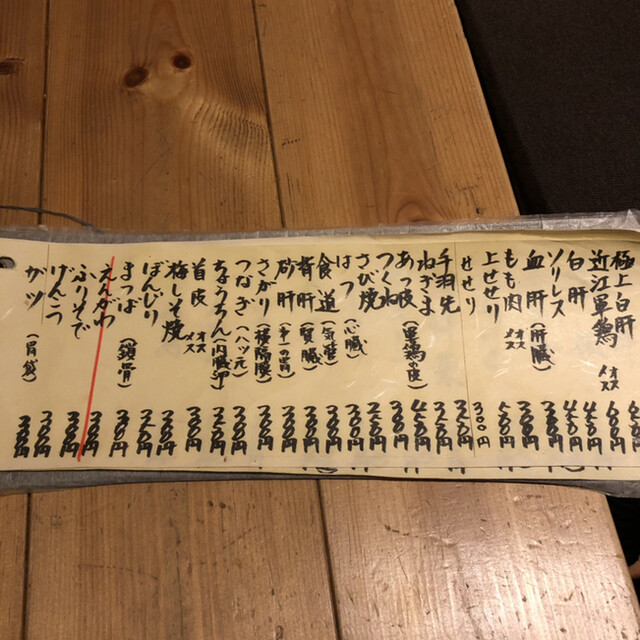 極上白肝
近江軍鶏 オス メス 600円
白肝 450円
ソリレス 450円
血肝(肝臓) 300円
もも肉 オス メス 500円
上せせり 300円
せせり 250円
手羽先 250円
ねぎま 450円
あつ皮(軍鶏の皮) 300円
つくね 250円
さび焼 350円
はつ(心臓) 300円
食道(気管) 300円
背肝(腎臓) 300円
砂肝(キモの胃) 300円
さがり(横隔膜) 300円
つなぎ(ハツ元) 300円
ちょうちん(内臓卵) 350円
首皮 オス メス 300円
梅しそ焼 300円
ぼんじり 250円
まつば(鎖骨) 300円
えんがわ 300円
ふりそで 300円
げんこつ 300円
ガツ(胃袋) 300円